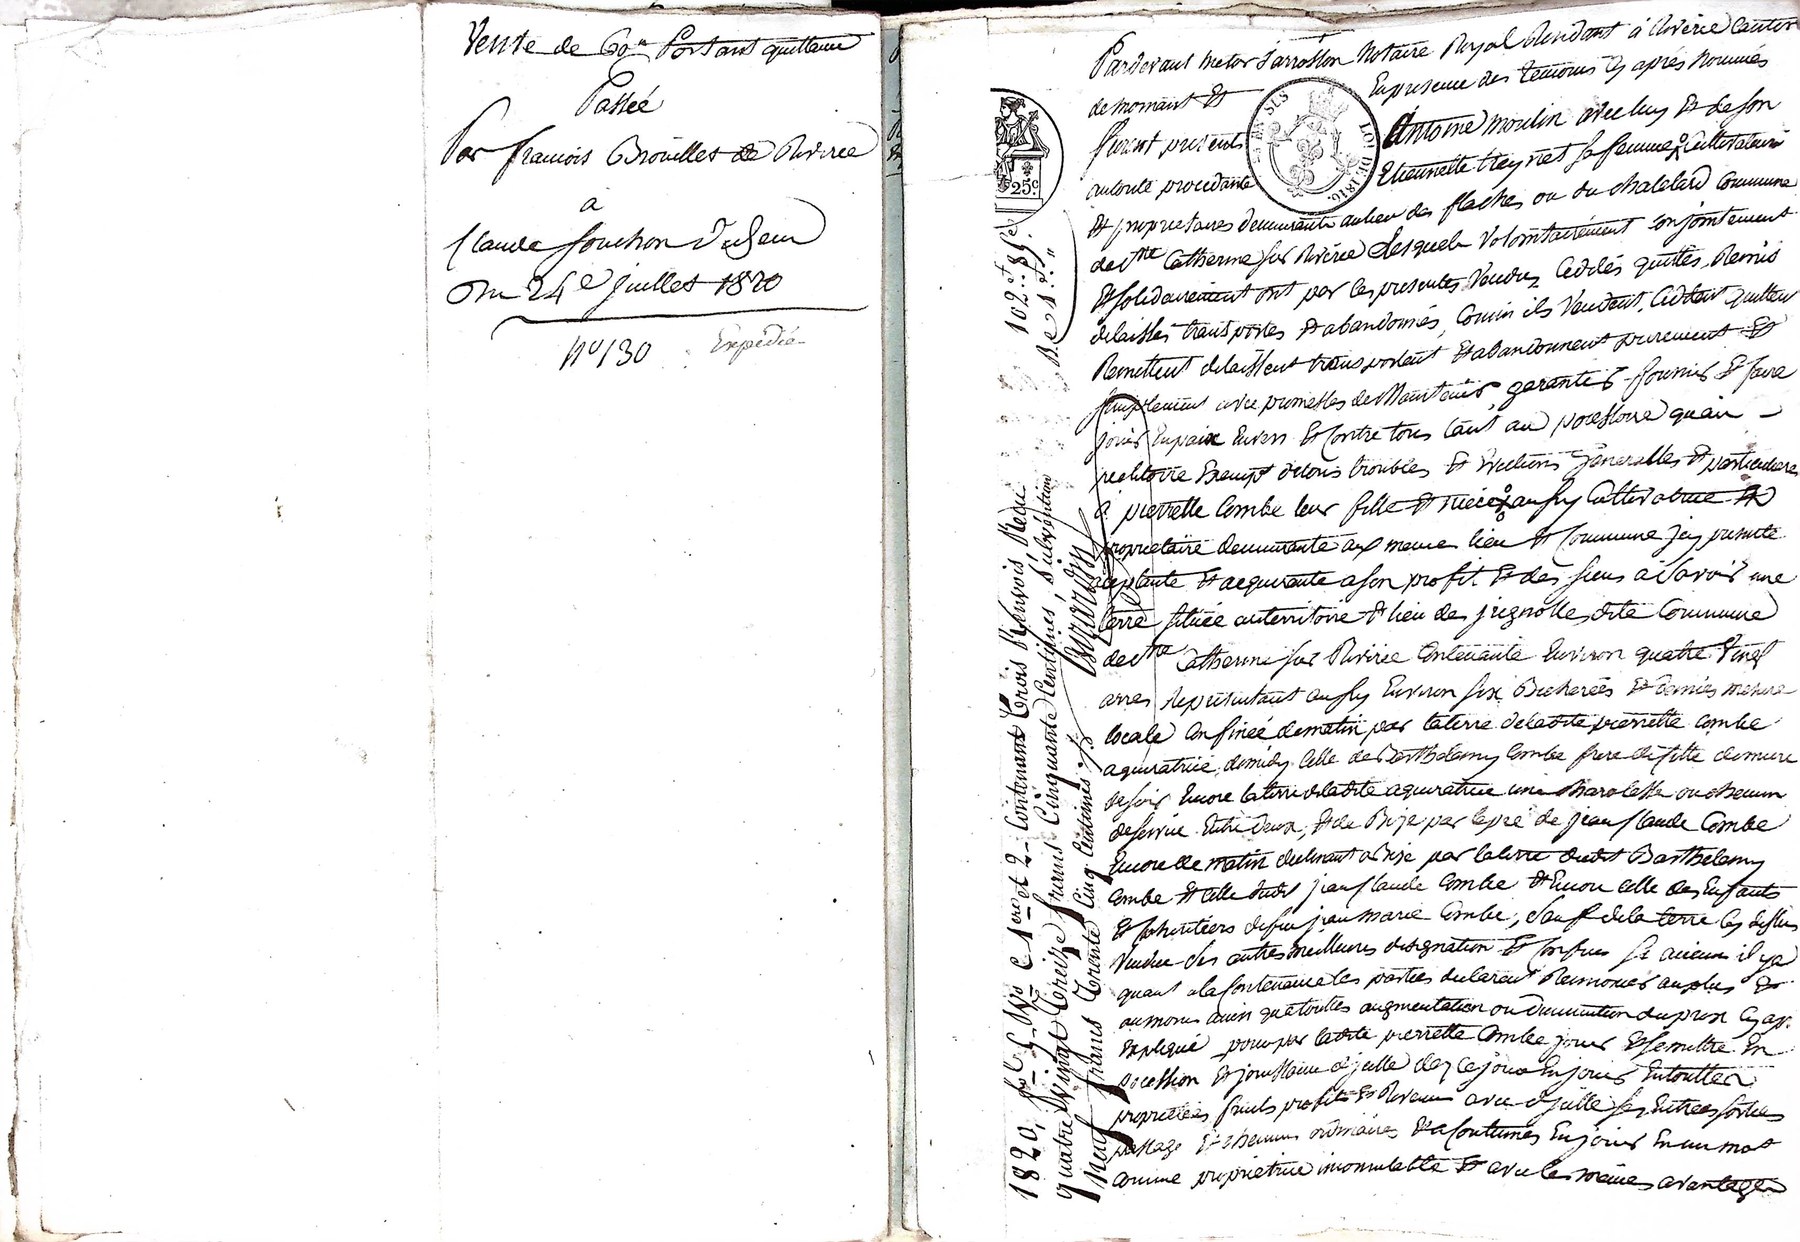 Vente de 69.rs Portant quittance
Passée
Par francois Brouillet de Riverie
a
Claude fouchon Duzeu
Du 24e juillet 1820
No 130 Expédiée
Pardevant metor Notaire Royal Résidant à Riverie Canton
de mornant Et En presence des temoins cy après Nommés
furent presents Antoine moulin avec luy Et de son
autorité procedante Etiennette treynet sa femme Cultivateurs
Et proprietaires demeurants au lieu des flaches ou du chatelard Commune
de Ste Catherine sur Riverie Lesquels Volontairement Conjointement
Et solidairement ont par ces presentes Vendu, Ceddés quittés, Remis
delaissés transportés Et abandonnés, Comm ils Vendent, Cedent quittent
Remettent delaissent transportent Et abandonnent purement Et
simplement avec promesses de Maintenir, garantir fournir Et faire
jouir En paix Envers Et Contre tous tant au possessoire quau
petitoire Exempt de tous troubles Et Evictions Generalles Et particulieres
à pierrette Combe leur fille Et niéce aussy Cultivatrice Et
proprietaire demeurante aux meme lieu Et Commune Icy presente
aceptante Et aequerante a son profit Et des siens a Savoir une
terre située au territoire Et lieu des jugnolles dite Commune
de Ste Catherine sur Riverie Contenante Environ quatre Vingt
arres Representant aussy Environ six Bicherées Et demies mesure
locale Confinée de matin par la terre de ladite pierrette Combe
aqueratrice, de midy Celle de Barthelemy Combe frere de
de soir Encore la terre de ladite aqueratrice une charolette ou chemin
deservie Entre deux, Et de Bize par le pré de jean Claude Combe
Encore de matin declinant a Bize par la terre dudit Barthelemy
Combe Et Celle dudit jean Claude Combe Et Encore Celle des Enfants
Et heritiers de feu jean marie Combe, Sauf de la terre cy dessus
Vendue des autres meilleures designation Et Confins Si aucuns il y a
quant a la Contenance les parties declarent Renoncer au plus Et
au moins ainsi qu'a toutes augmentation ou diminution du prix Cy apr.
Expliqué pour par ladite pierrette Combe jouir Et se mettre En
pocession Et jouissance d'ycelle dez ce jour En jouir En toutes
proprietées fruits profits Et Revenus avec d'ycelle ses Entrées Sorties
passage Et chemins ordinaires Et a Coutumés En jouir En un mot
comme proprietrice incommutable Et avec les mêmes avantages
LOI DE 1816.
25c
102f. 85c
D.e 1f. "
1820, fol. Contenant trois Renvois, Reçu
quatre Vingt treize francs Cinquante Centimes, Subvention
Neuf francs trente Cinq Centimes.